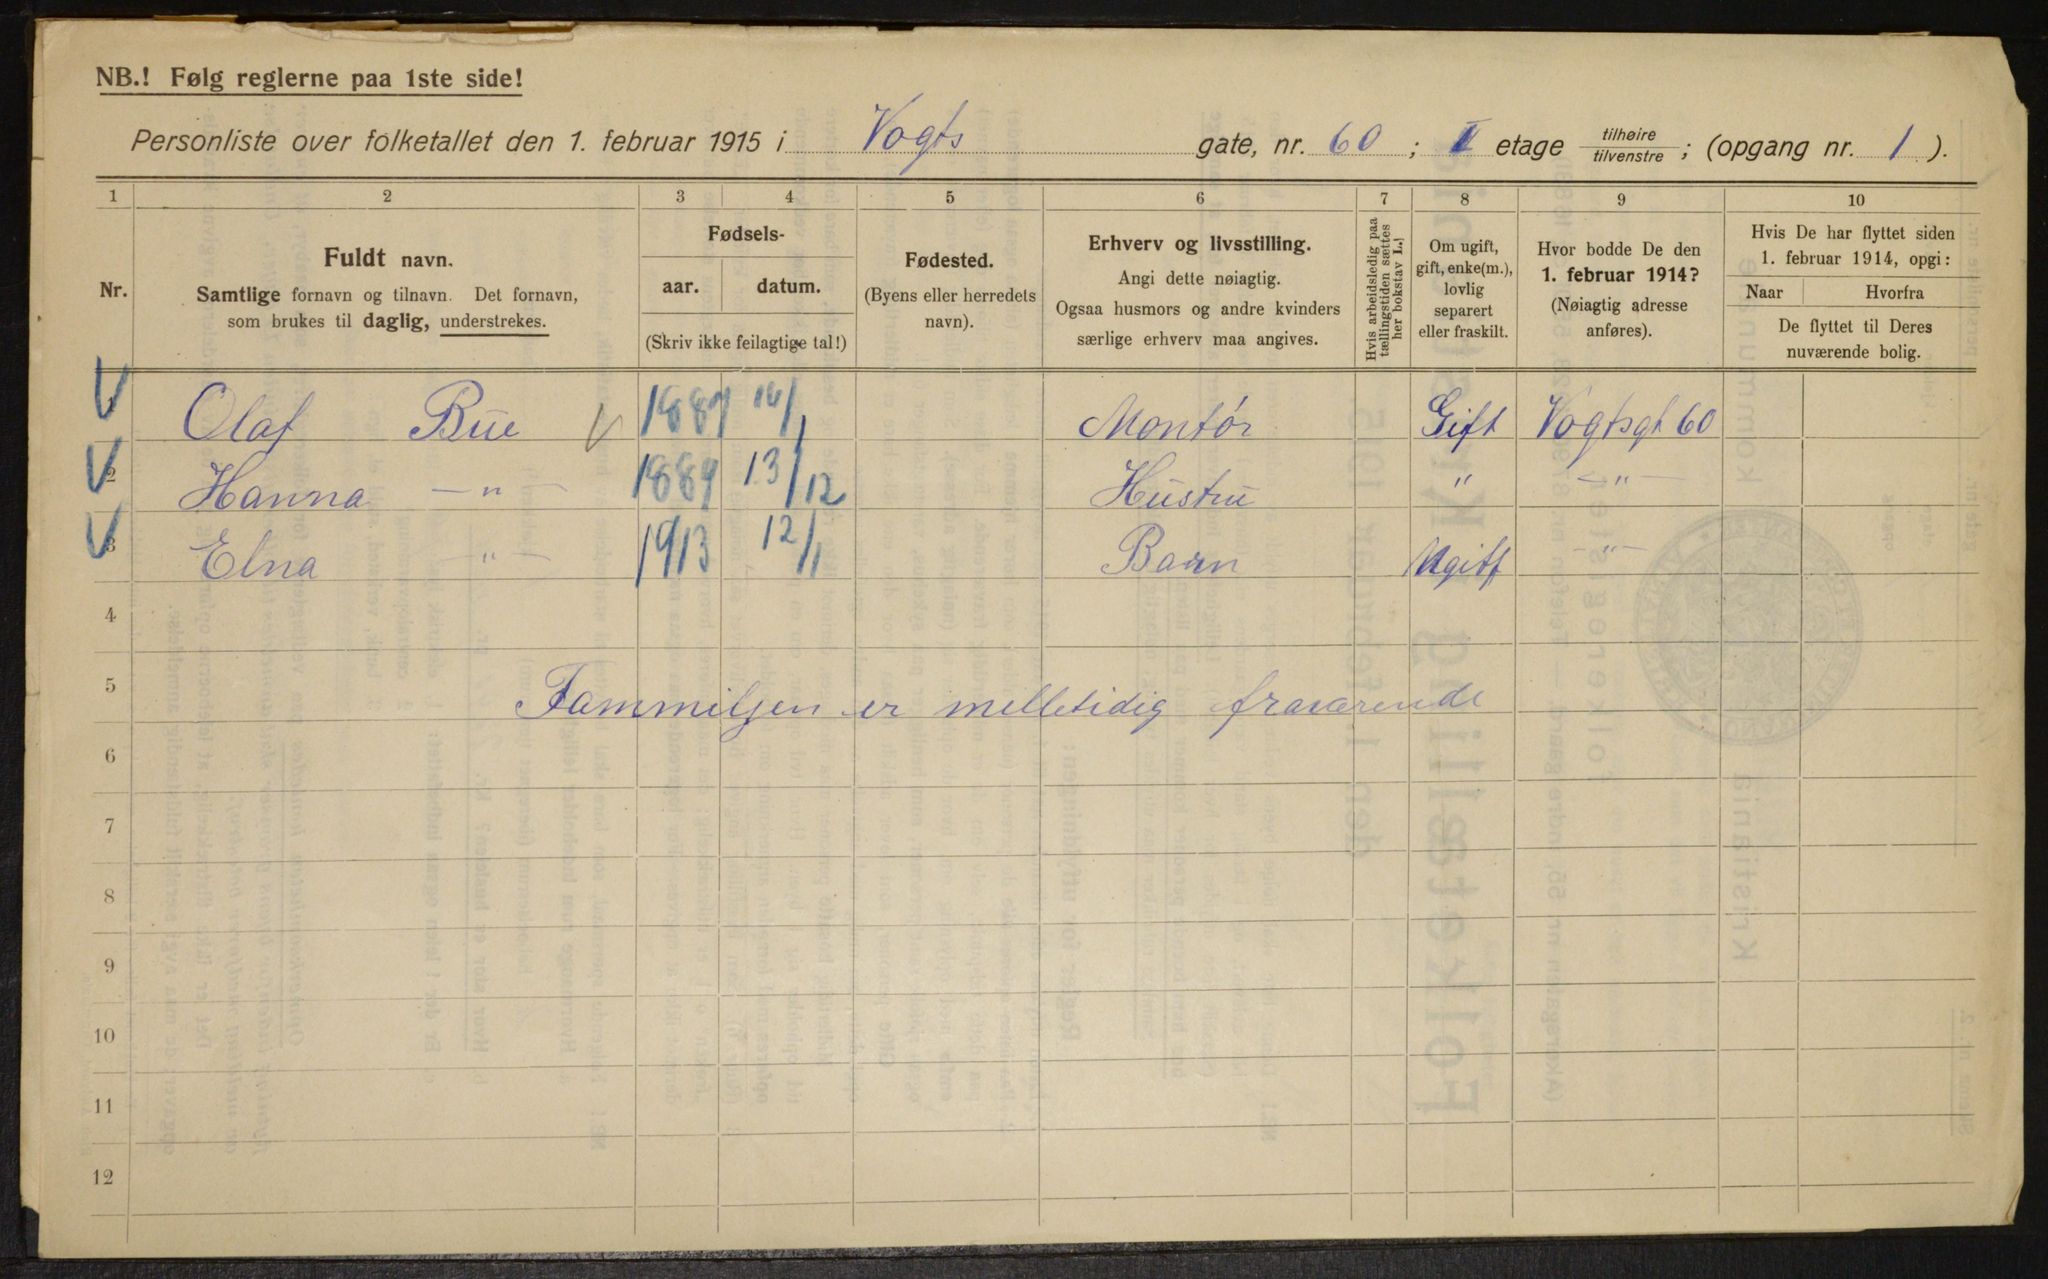 NB.! Følg reglerne paa 1ste side!
Personliste over folketallet den 1. februar 1915 i Vogts gate, nr. 60; I etage tilhøire/tilvenstre; (opgang nr. 1).
1 2 3 4 5 6 7 8 9 10
Nr.
Fuldt navn.
Samtlige fornavn og tilnavn. Det fornavn,
som brukes til daglig, understrekes.
Fødsels-
aar. datum.
(Skriv ikke feilagtige tal!)
Fødested.
(Byens eller herredets
navn).
Erhverv og livsstilling.
Angi dette nøiagtig.
Ogsaa husmors og andre kvinders
særlige erhverv maa angives.
Hvis arbeidsledig paa
tællingstiden sættes
her bokstav L.!
Om ugift,
gift, enke(m.),
lovlig
separert
eller fraskilt.
Hvor bodde De den
1. februar 1914?
(Nøiagtig adresse
anføres).
Hvis De har flyttet siden
1. februar 1914, opgi:
Naar Hvorfra
De flyttet til Deres
nuværende bolig.
Olaf Bue 1887 Montør Gift Vogtsgt 60
2 Hanna —"— 1889 13/12 Hustru " —"—
3 Elna —"— 1913 12/1 Barn Ugift —"—
4
5 Fammiljen er melletidig fraværende
6
7
8
9
10
11
12